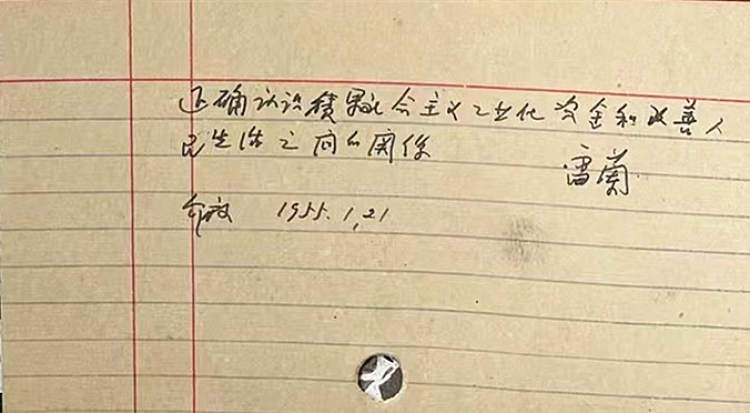 正确认识积累社会主义工业化资金和改善人
民生活之间的关系
雷蘭
解放 1955.1,21